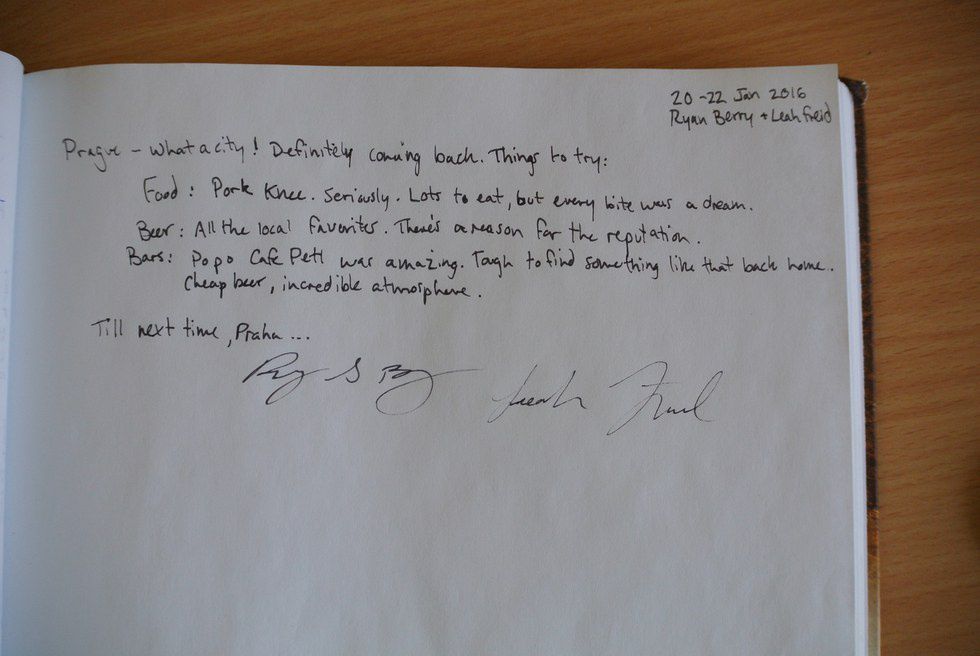 20-22 Jan 2016
Ryan Berry + Leah Freid
Prague - What a city! Definitely coming back. Things to try:
Food: Pork Knee. Seriously. Lots to eat, but every bite was a dream.
Beer: All the local favorites. There's a reason for the reputation.
Bars: Popo Café Petl was amazing. Tough to find something like that back home.
Cheap beer, incredible atmosphere.
Till next time, Praha...
Leah Freid